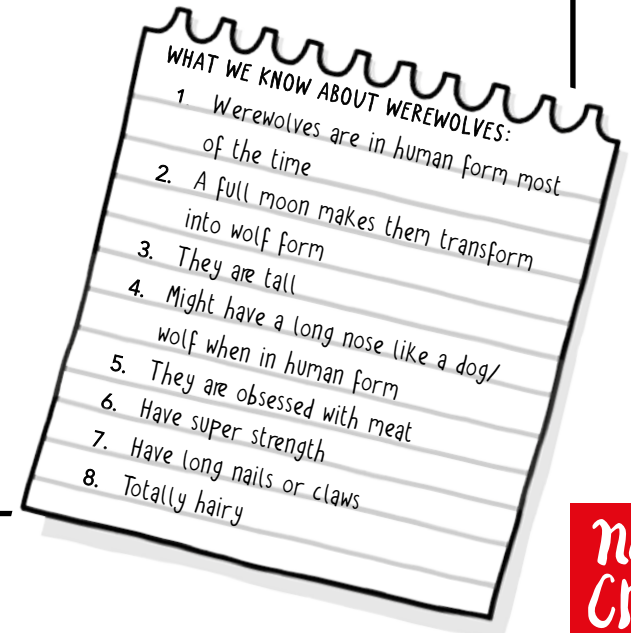 WHAT WE KNOW ABOUT WEREWOLVES:
1. Werewolves are in human form most
of the time
2. A full moon makes them transform
into wolf form
3. They are tall
4. Might have a long nose like a dog/
wolf when in human form
5. They are obsessed with meat
6. Have super strength
7. Have long nails or claws
8. Totally hairy